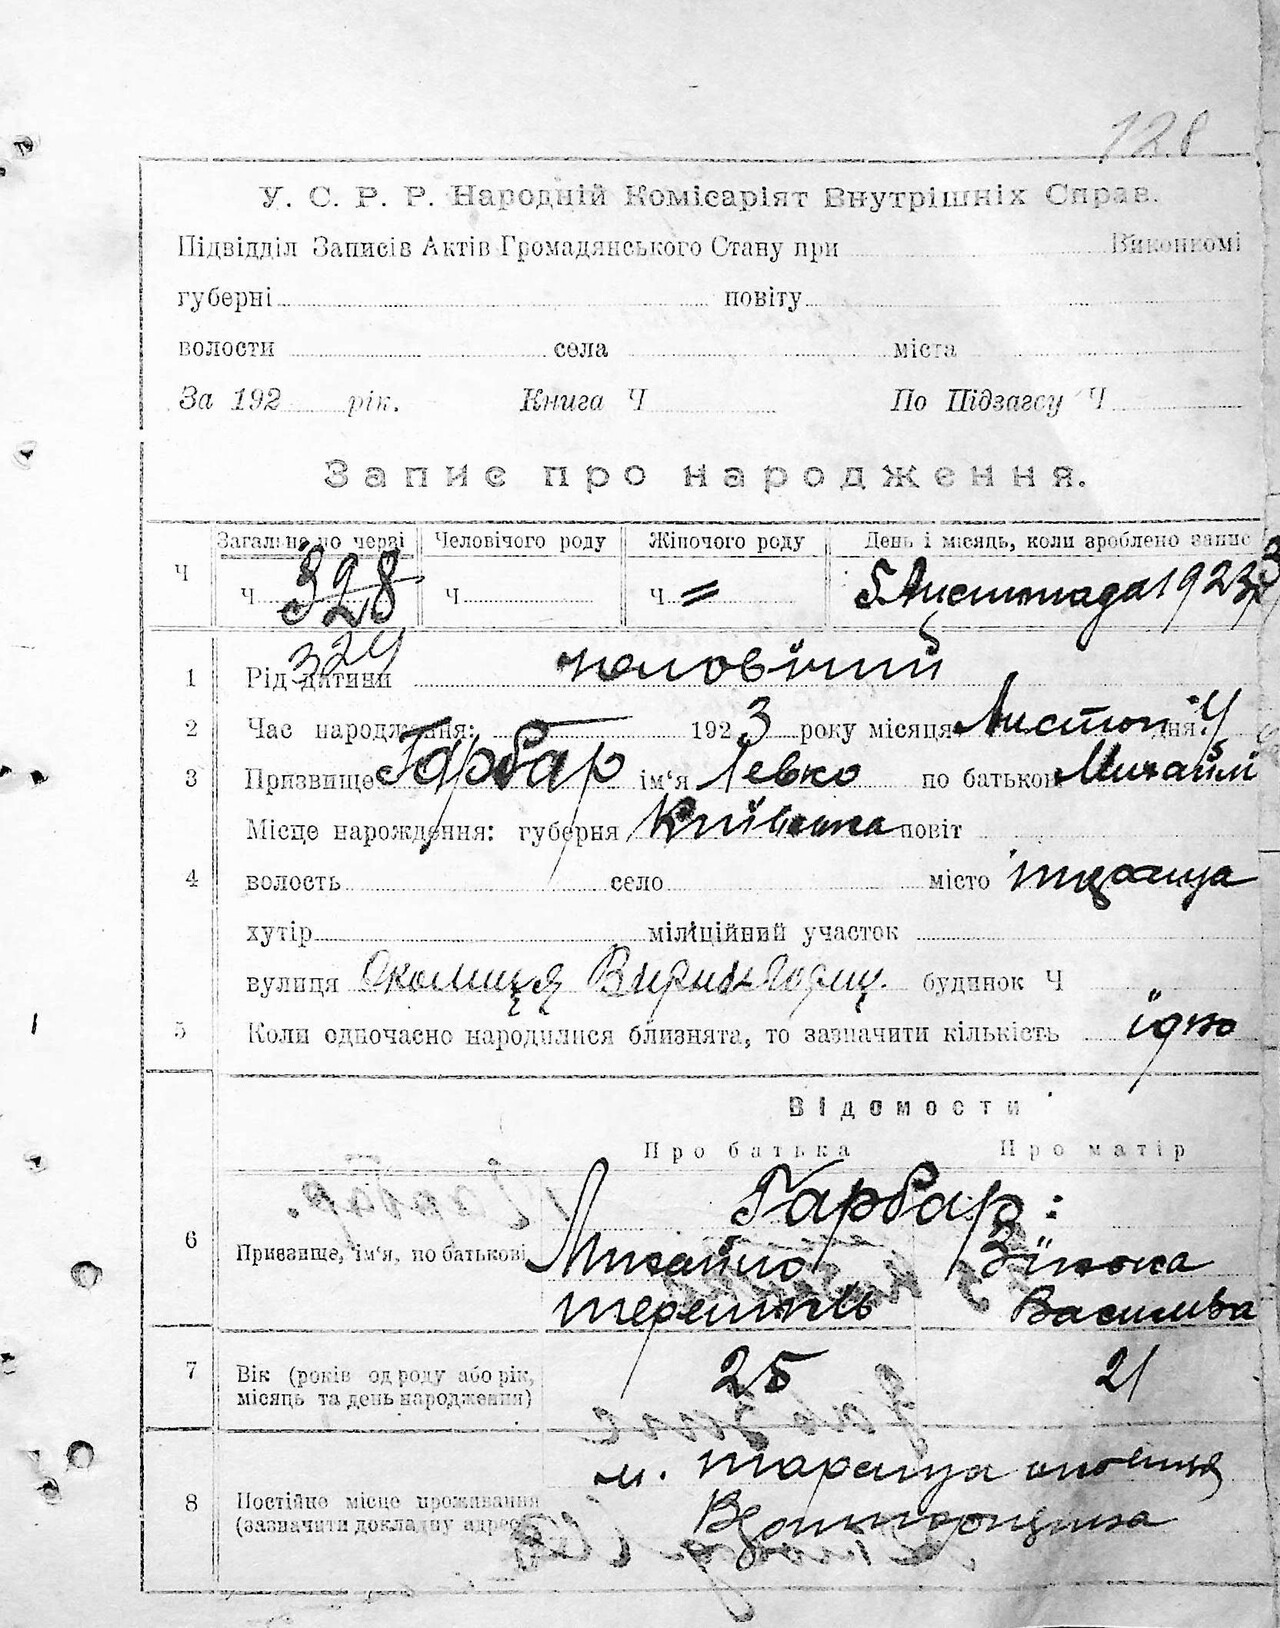 128
У. С. Р. Р. Народній Комісаріят Внутрішніх Справ.
Підвідділ Записів Актів Громадянського Стану при Виконкомі
губерні повіту
волости села міста
За 192 рік. Книга Ч По Підзагсу Ч
Запис про народження.
Ч
Загальне по черзі Человічого роду Жіночого роду День і місяць, коли зроблено запис
Ч 328 Ч Ч = 5 Листопада 1923
324
1 Рід дитини чоловічий
2 Час народження: 1923 року місяця Листоп дня 4
3 Призвище Гарбар ім'я Левко по батькові Михайл
Місце нарождення: губерня Київська повіт
4 волость село місто Тараща
хутір міліційний участок
вулиця Околиця будинок Ч
5 Коли одночасно народилися близнята, то зазначити кількість їдно
Відомости
Про батька Про матір
6 Призвище, ім'я, по батькові
Гарбар:
Михайло Зінька
Терешків Василева
7 Вік (років од роду або рік, місяць та день народження) 25 21
8 Постійне місце проживання (зазначити докладну адресу)
м. Тараща околиця